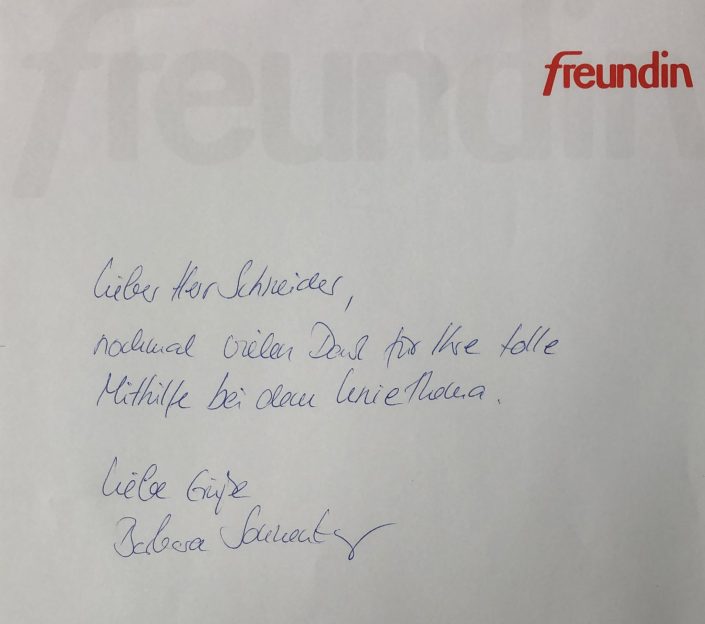 freundin
freundin
Lieber Herr Schneider,
nochmal vielen Dank für Ihre tolle
Mithilfe bei dem Knie Thema.
Liebe Grüße
Barbara Sonnentag